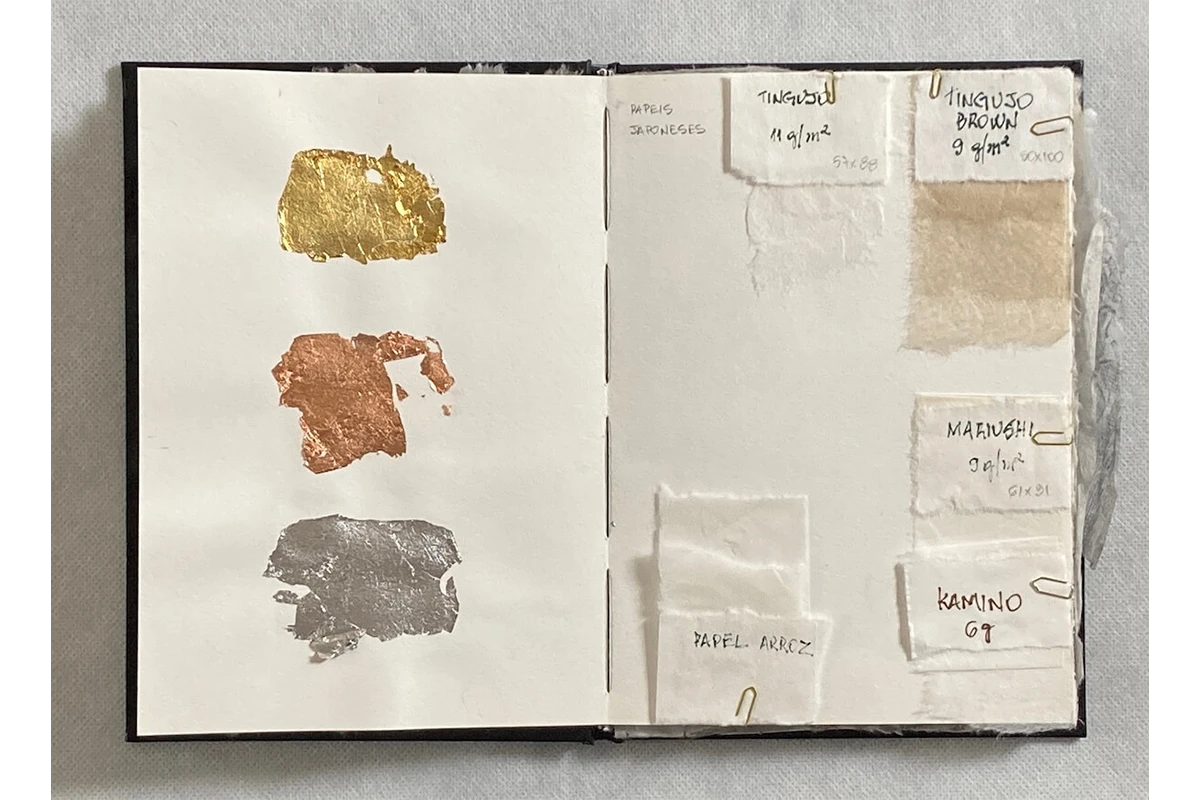 PAPEIS
JAPONESES
TINGUJO
11 g/m²
57x88
TINGUJO
BROWN
9 g/m²
80x100
MARIUSHI
9 g/m²
61x91
PAPEL ARROZ
KAMINO
6g